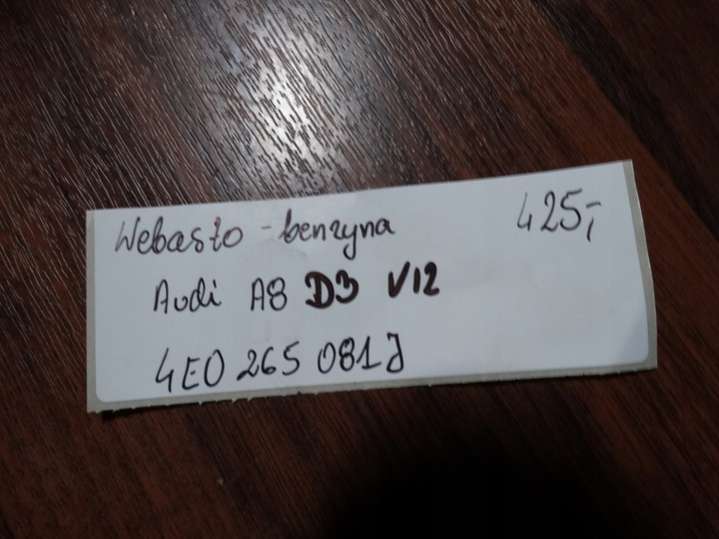 Webasto - benzyna 425,-
Audi A8 D3 V12
4E0 265 081J